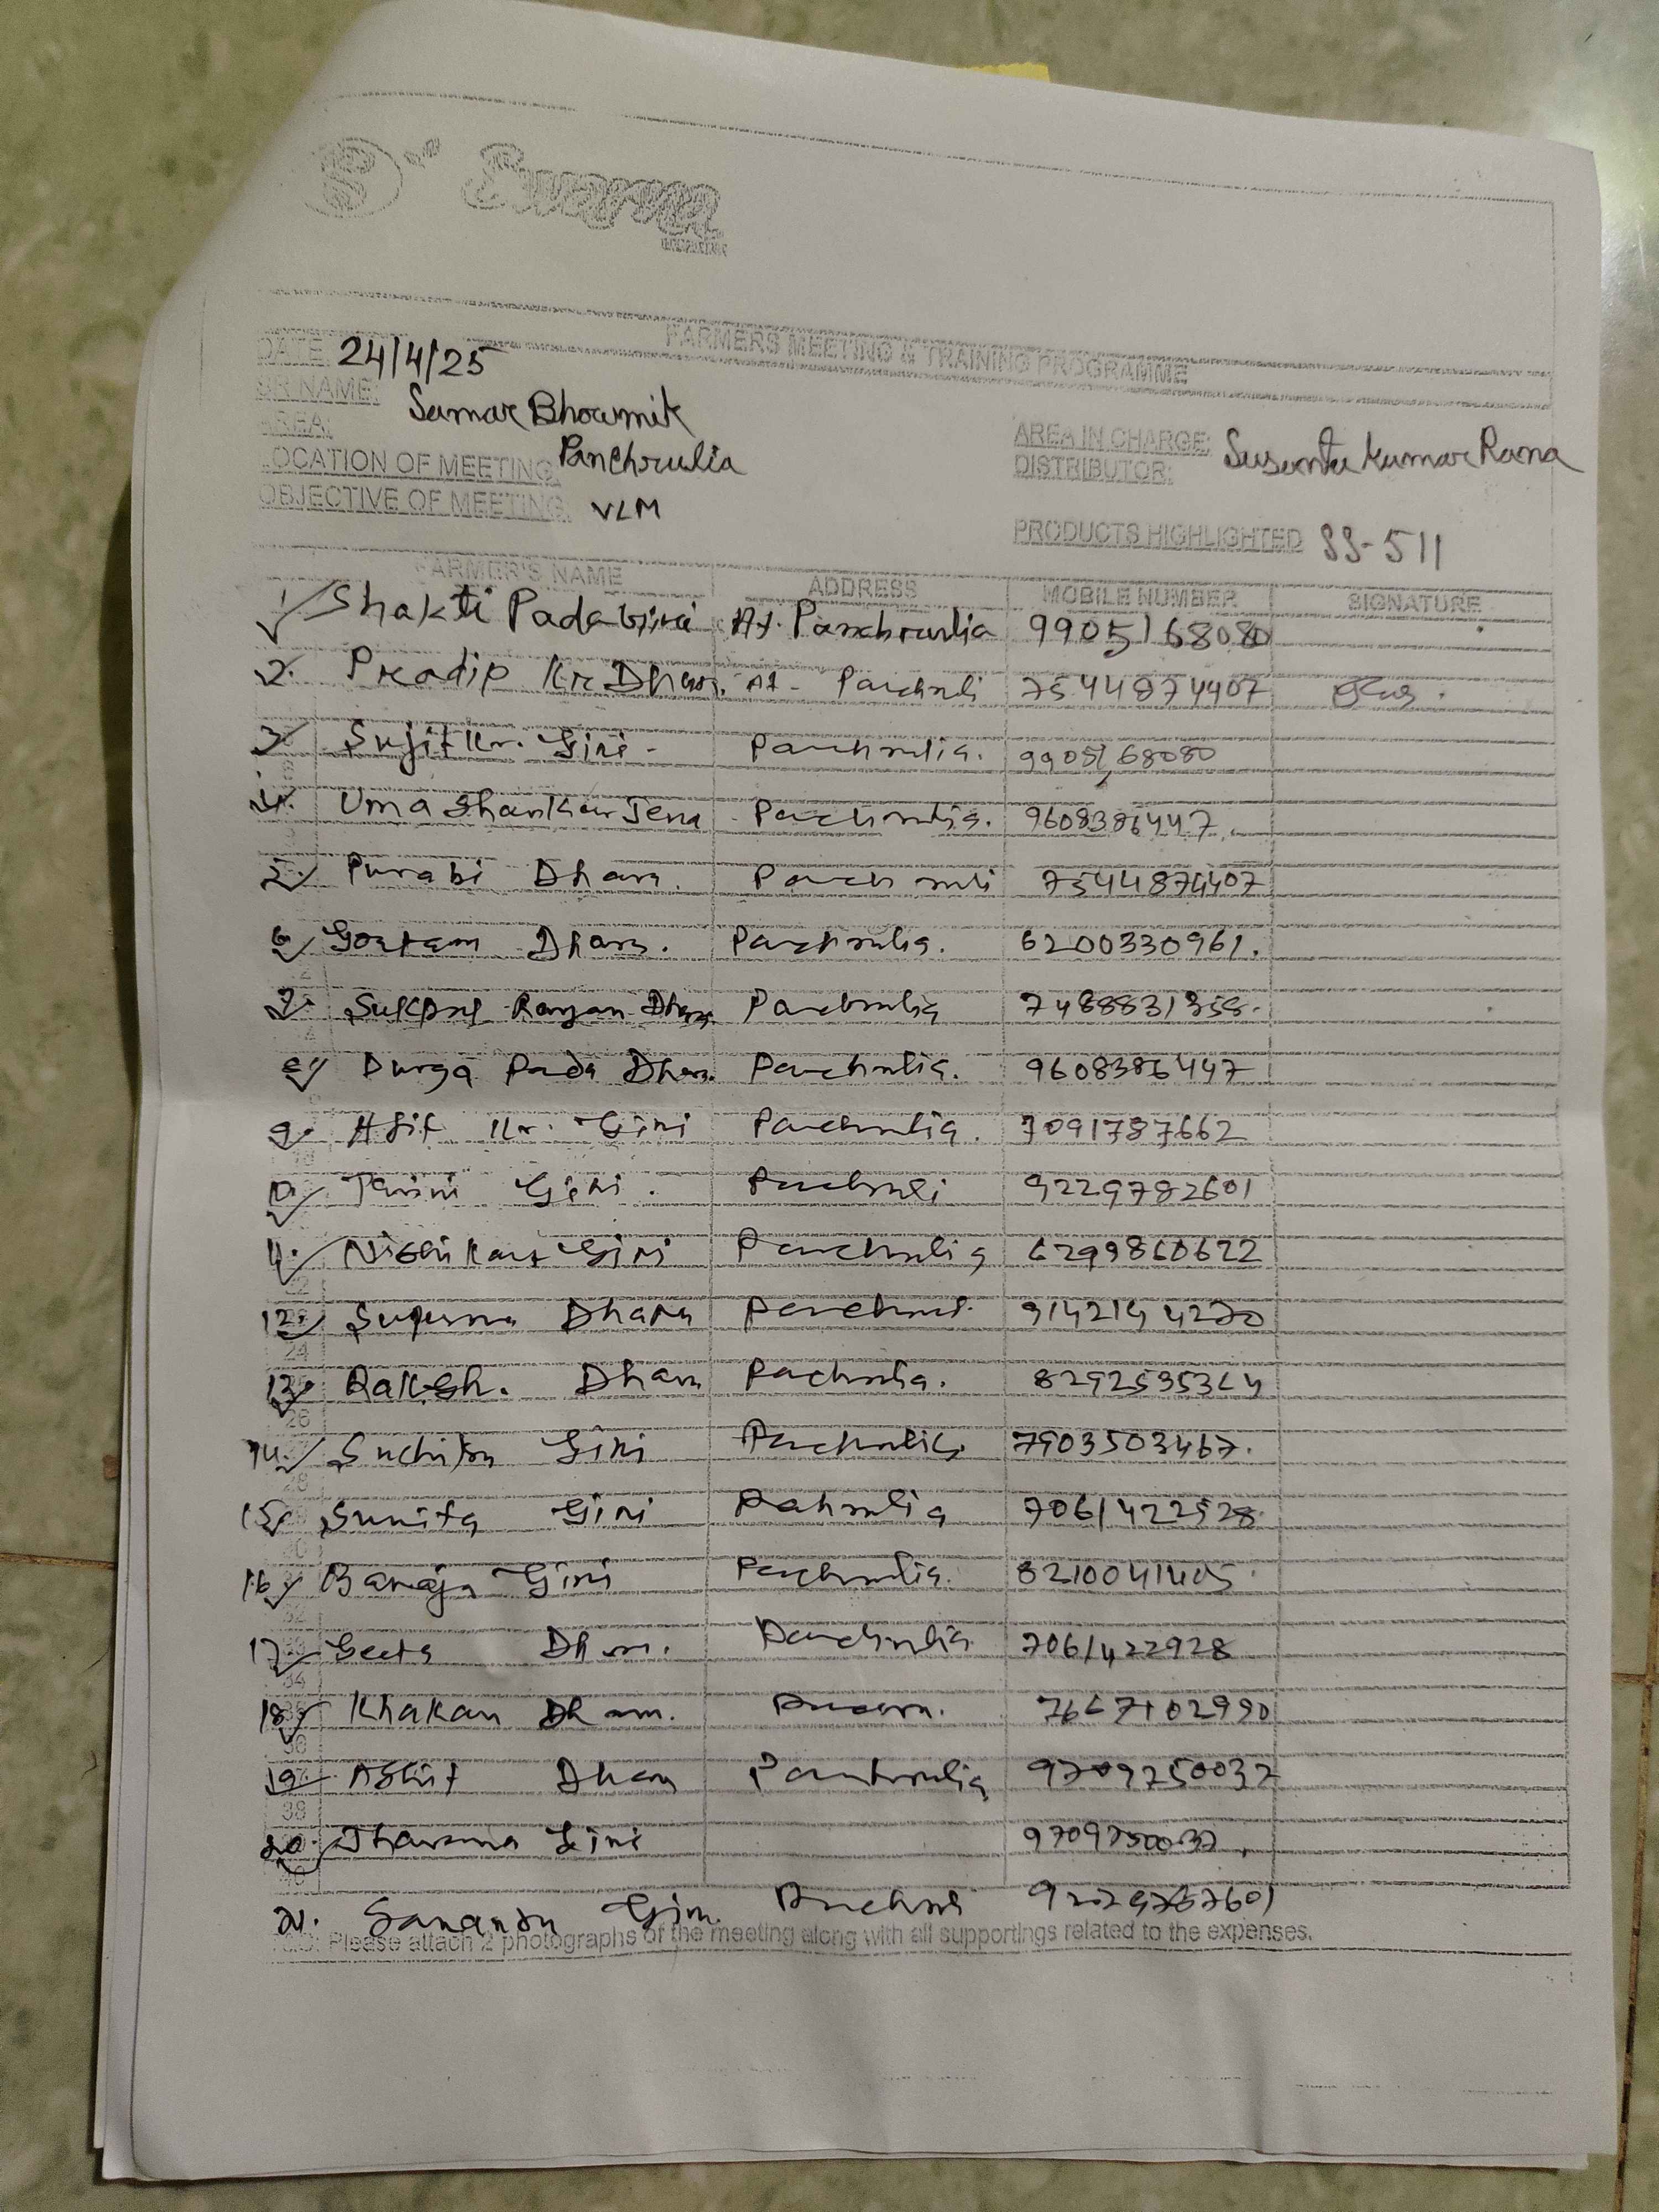 FARMERS MEETING & TRAINING PROGRAMME
DATE: 24/4/25
SR NAME: Samar Bhowmik
AREA:
LOCATION OF MEETING: Panchrulia
OBJECTIVE OF MEETING: VLM
AREA IN CHARGE: Susanta Kumar Rana
DISTRIBUTOR:
PRODUCTS HIGHLIGHTED SS-511
FARMER'S NAME ADDRESS MOBILE NUMBER SIGNATURE
1 Shakti Pada Giri At. Panchrulia 9905168080
2. Pradip Kr Dhara. At - Panchruli 7544874407
3 Sujit Kr. Giri - Panchrulia. 9905168080
4. Uma Shankar Jena - Panchrulia. 9608386447
5. Purabi Dhara. Panchruli 7544874407
6 Goutam Dhara. Panchrulia. 6200330961.
7. Ranjan Dhara Panchrulia
8 Durga Pada Dhara. Panchrulia. 9608386447
9. Asit Kr. Giri Panchrulia. 7091787662
10 Giri. Panchruli 9229782601
11. Nishikant Giri Panchrulia 6299860622
12 Suparna Dhara Panchruli 9142144270
13 Rakesh. Dhara Pachrulia.
14. Suchitra Giri Panchrulia 7903503467.
15 Sunita Giri Pahrulia 7061422528
16 Giri Panchrulia. 8210041405
17 Geeta Dhara. Panchrulia 7061422928
18 Khakan Dhara.
19 Dhara Panchrulia 9709750037
20. Giri 9709750037
21. Giri Panchruli
N.B: Please attach 2 photographs of the meeting along with all supportings related to the expenses.